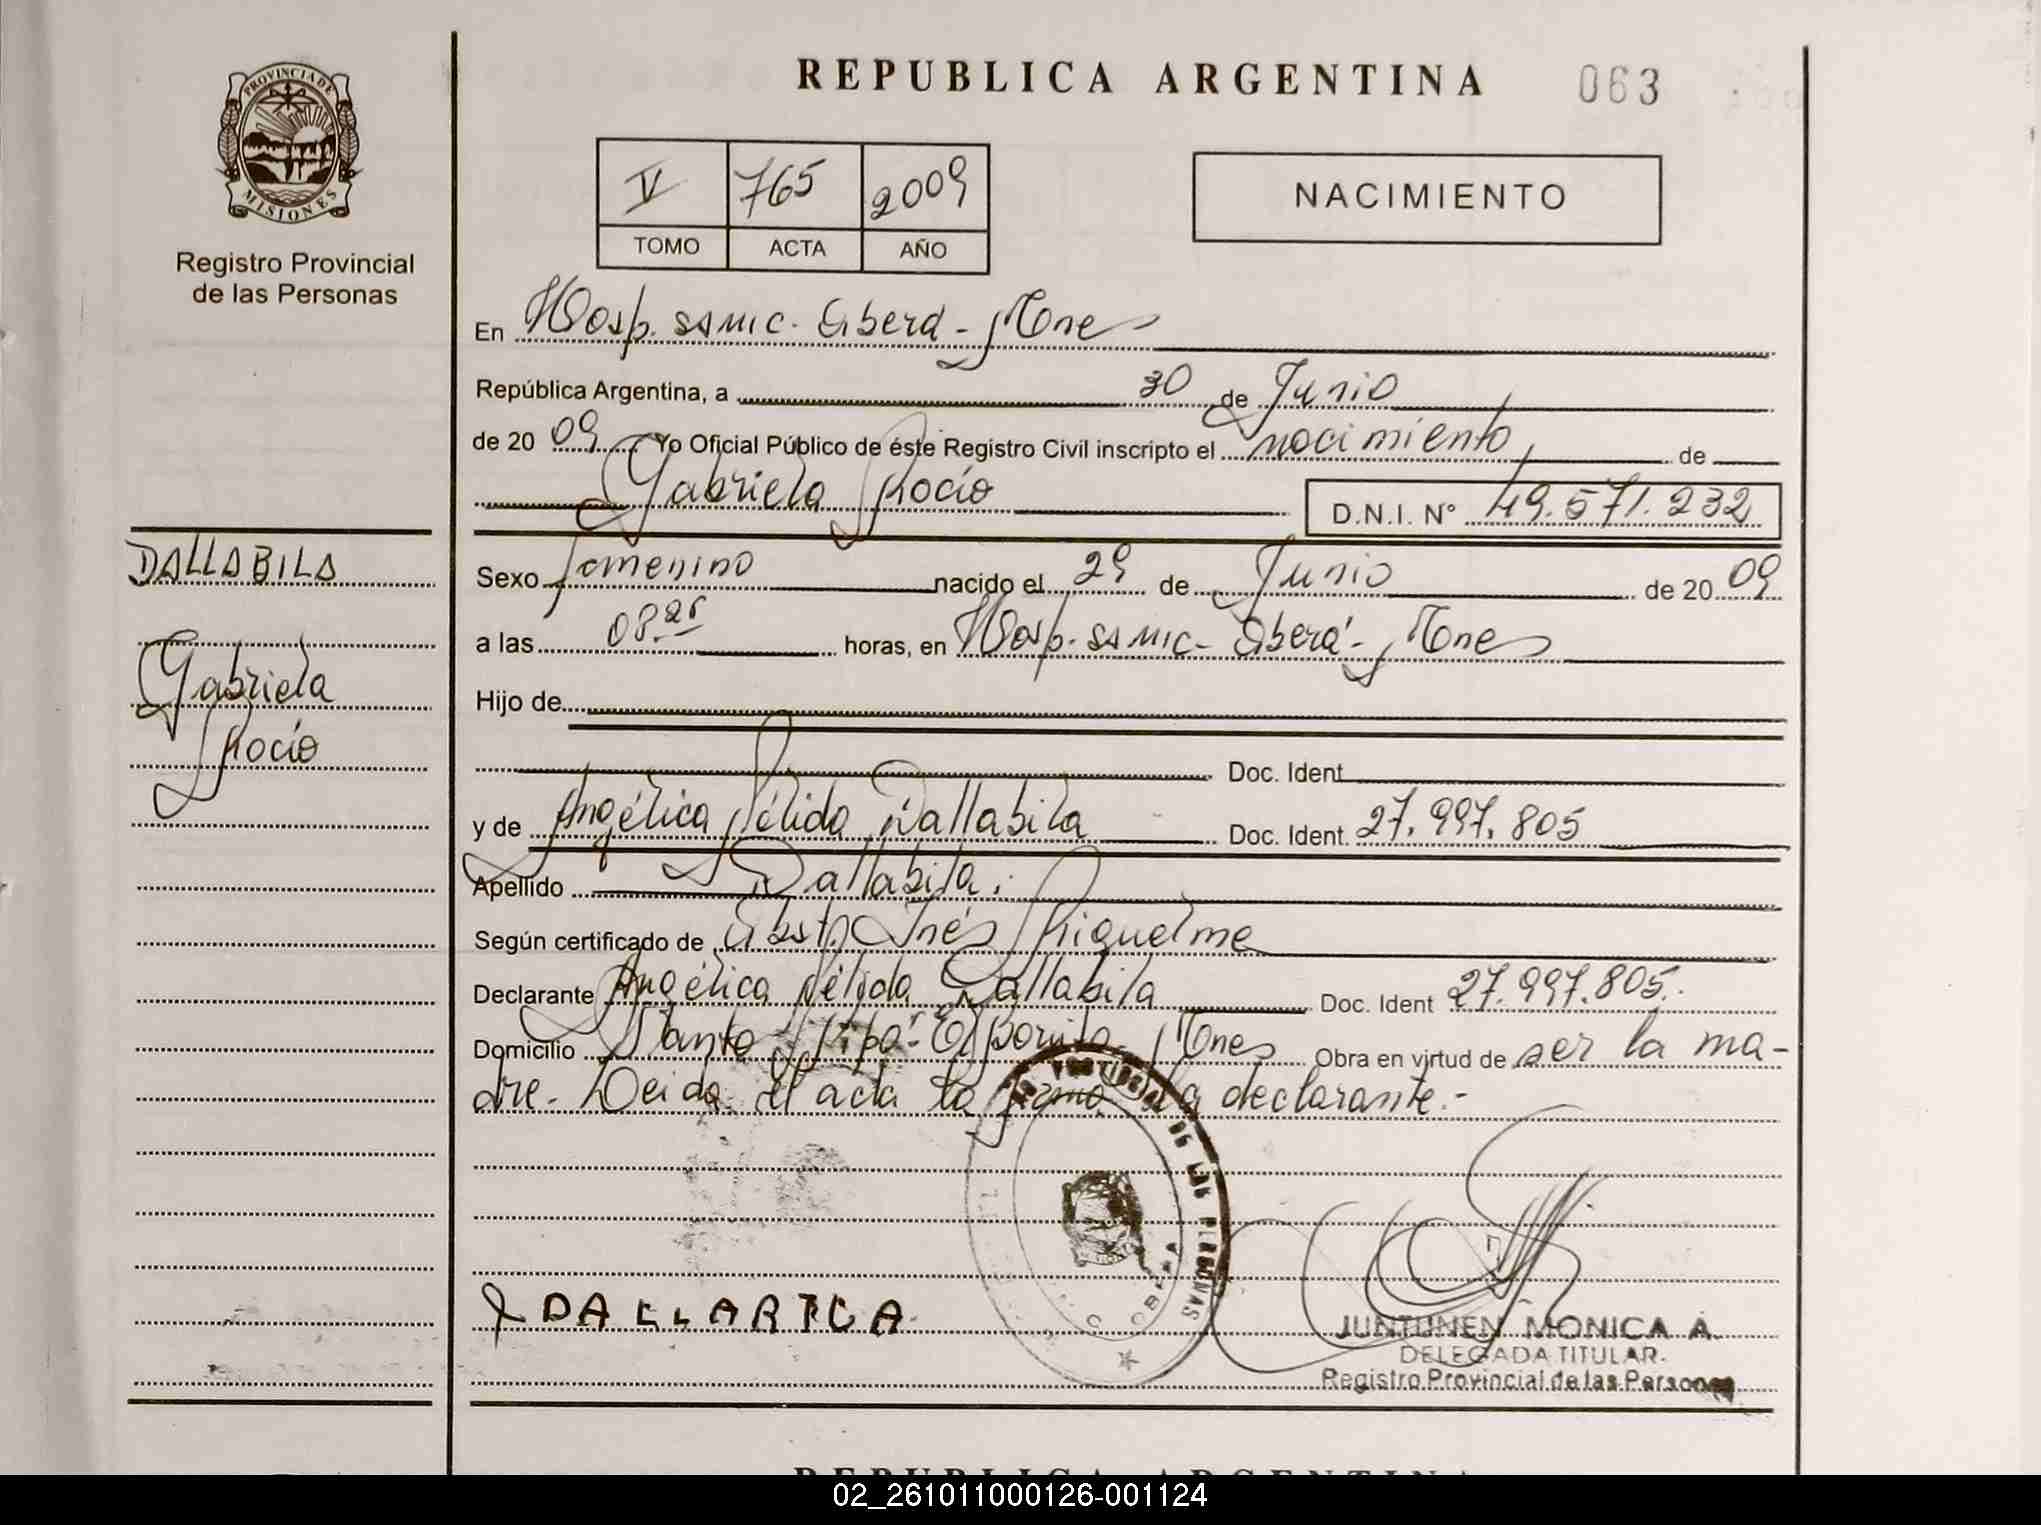 REPUBLICA ARGENTINA 063
PROVINCIA DE
MISIONES
Registro Provincial
de las Personas
V 765 2009
TOMO ACTA AÑO
NACIMIENTO
En Hosp. SAMIC. Oberá - Mnes
República Argentina, a 30 de Junio
de 20 09 Yo Oficial Público de éste Registro Civil inscripto el nacimiento de
Gabriela Rocío D.N.I. N° 49.571.232
DALLABILA
Gabriela
Rocío
Sexo femenino nacido el 29 de Junio de 20 09
a las 08.26 horas, en Hosp. SAMIC - Oberá - Mnes
Hijo de
Doc. Ident
y de Angélica Nélida Dallabila Doc. Ident. 27.997.805
Apellido Dallabila.
Según certificado de Obst. Inés Riquelme
Declarante Angélica Nélida Dallabila Doc. Ident 27.997.805.
Domicilio Mnes Obra en virtud de ser la ma-
dre. Leida el acta la firma la declarante.-
DALLABILA
JUNTUNEN MONICA A.
DELEGADA TITULAR
Registro Provincial de las Personas
REPUBLICA ARGENTINA
02_261011000126-001124